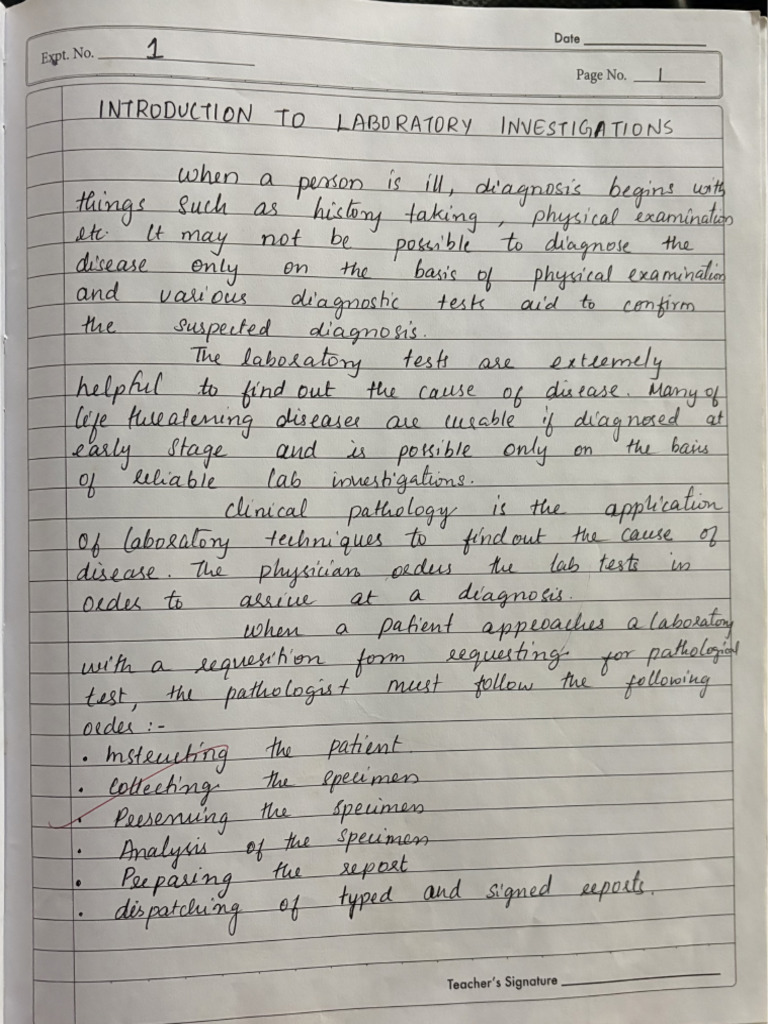 Date
Expt. No. 1
Page No. 1
INTRODUCTION TO LABORATORY INVESTIGATIONS
When a person is ill, diagnosis begins with
things such as history taking, physical examination
etc. It may not be possible to diagnose the
disease only on the basis of physical examination
and various diagnostic tests aid to confirm
the suspected diagnosis.
The laboratory tests are extremely
helpful to find out the cause of disease. Many of
life threatening diseases are curable if diagnosed at
early stage and is possible only on the basis
of reliable lab investigations.
Clinical pathology is the application
of laboratory techniques to find out the cause of
disease. The physician orders the lab tests in
order to arrive at a diagnosis.
When a patient approaches a laboratory
with a requesition form requesting for pathological
test, the pathologist must follow the following
order :-
• Instructing the patient
• Collecting the specimen
• Preserving the specimen
• Analysis of the specimen
• Preparing the report
• dispatching of typed and signed reports.
Teacher's Signature